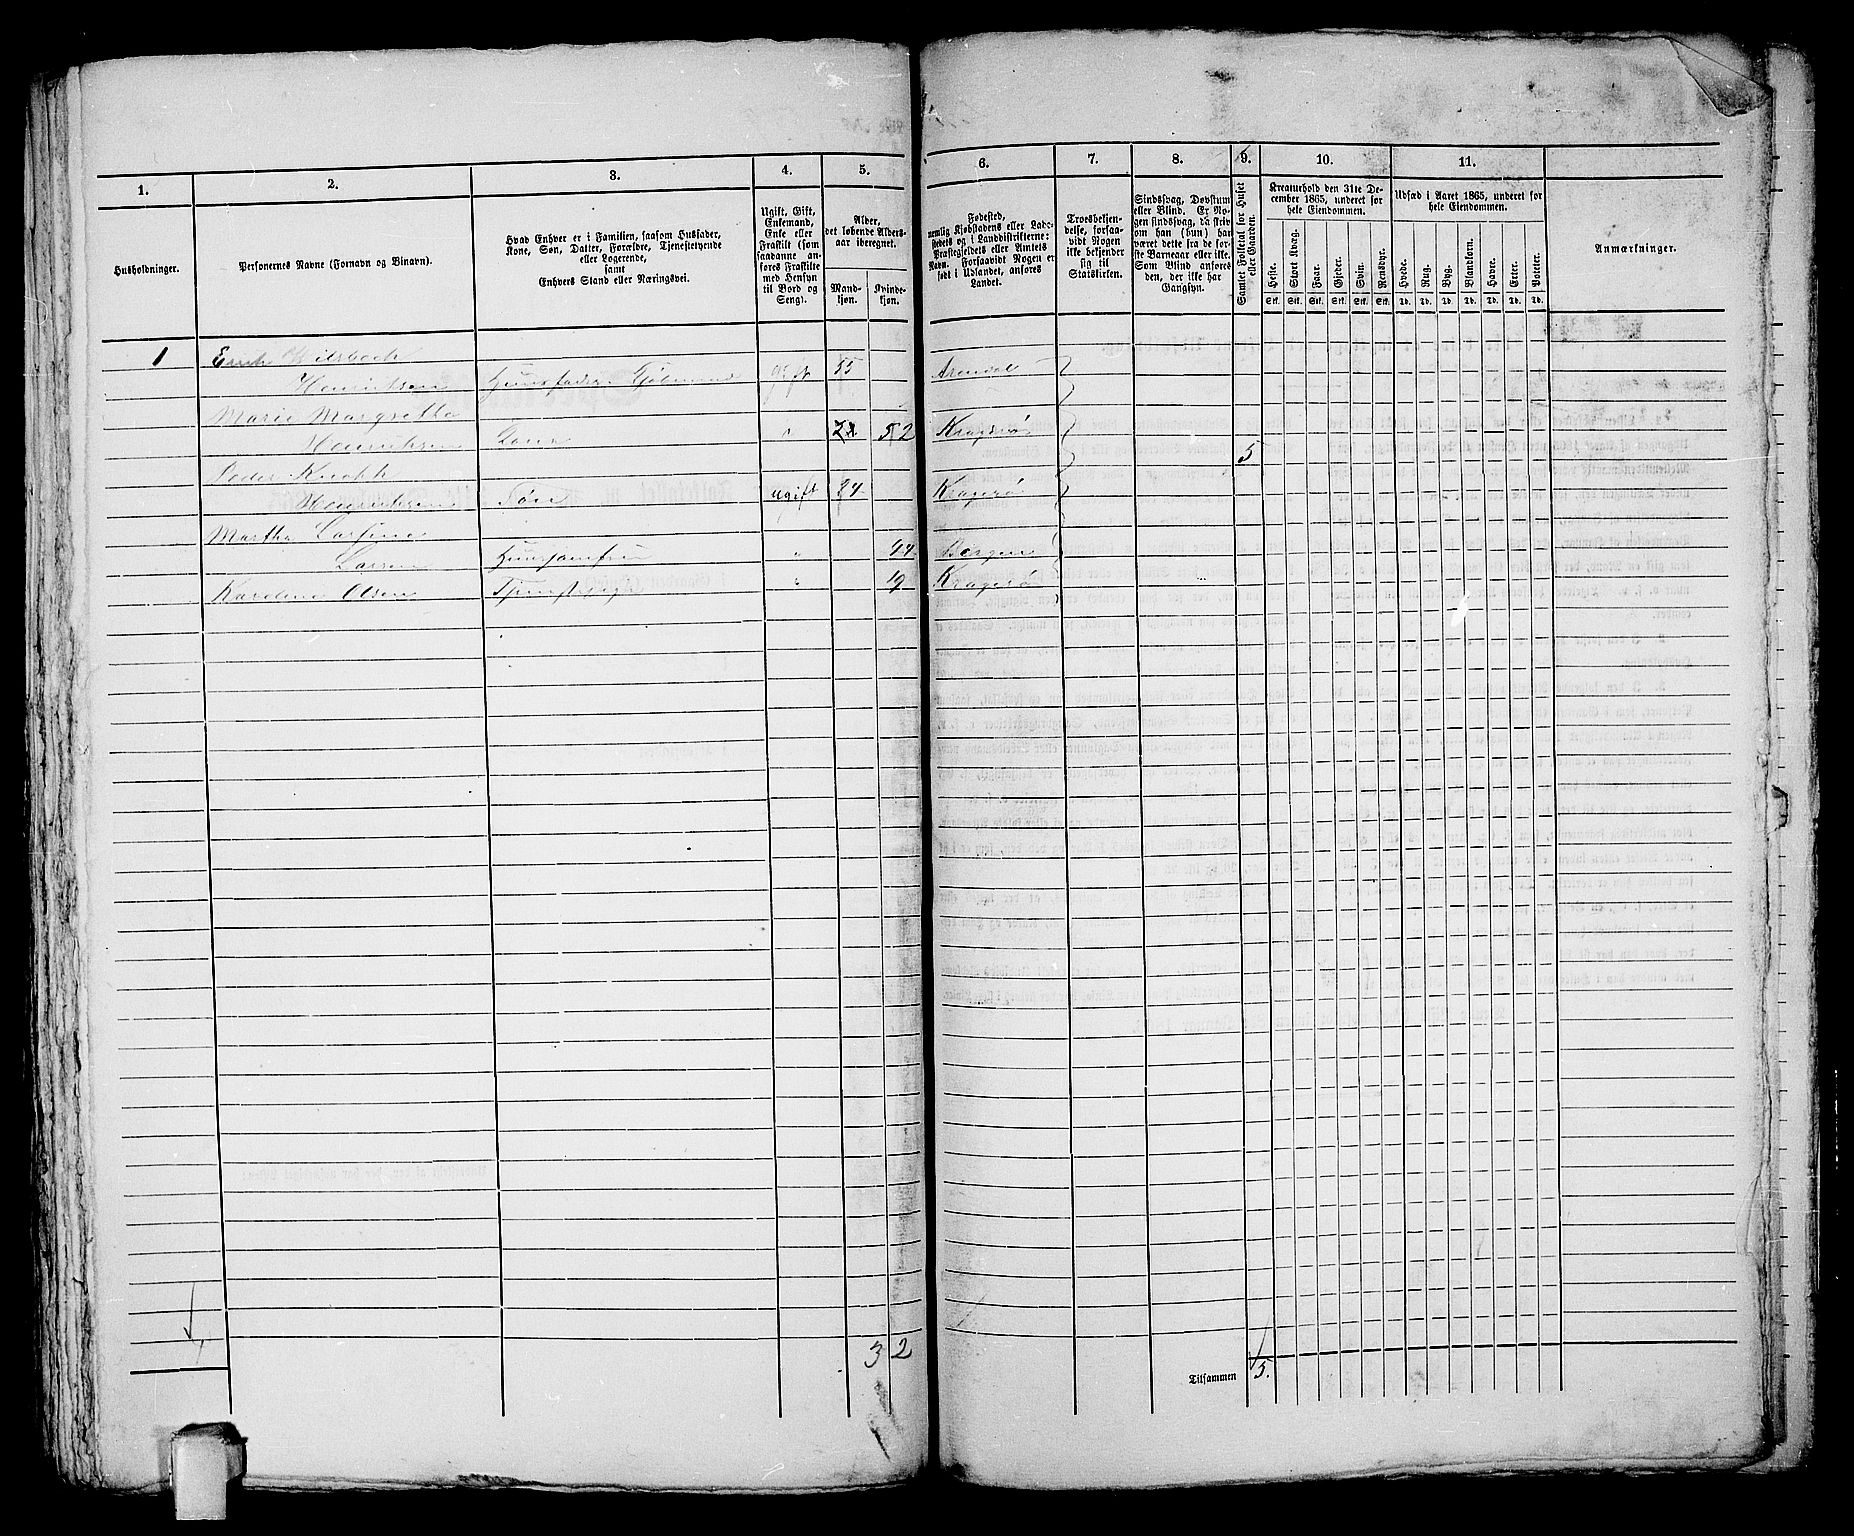 1. 2. 3. 4. 5. 6. 7. 8. 9. 10. 11.
Husholdninger.
Personernes Navne (Fornavn og Binavn).
Hvad Enhver er i Familien, saasom Husfader,
Kone, Søn, Datter, Forældre, Tjenestetyende
eller Logerende,
samt
Enhvers Stand eller Næringsvei.
Ugift, Gift,
Enkemand,
Enke eller
Fraskilt (som
saadanne an-
føres Fraskilte
med Hensyn
til Bord og
Seng).
Alder,
det løbende Alders-
aar iberegnet.
Mand-
kjøn.
Kvinde-
kjøn.
Fødested,
nemlig Kjøbstadens eller Lade-
stedets og i Landdistrikterne:
Præstegjeldets eller Amtets
Navn. Forsaavidt Nogen er
født i Udlandet, anføres
Landet.
Troesbekjen-
delse, forsaa-
vidt Nogen
ikke bekjender
sig til
Statskirken.
Sindssvag, Døvstum
eller Blind. Er No-
gen sindssvag, da skriv
om han (hun) har
været dette fra de før-
ste Barneaar eller ikke.
Som Blind anføres
den, der ikke har
Gangsyn.
Samlet Folketal for Huset
eller Gaarden.
Kreaturhold den 31te De-
cember 1865, underet for
hele Eiendommen.
Heste. Stort Kvæg. Faar. Gjeder. Svin. Rensdyr.
Stk. Stk. Stk. Stk. Stk. Stk.
Udsæd i Aaret 1865, underet for
hele Eiendommen.
Hvede. Rug. Byg. Blandkorn. Havre. Erter. Poteter.
Td. Td. Td. Td. Td. Td. Td.
Anmærkninger.
1
Henrichsen Huusfader Kjøbmand gift 55 Arendal
Marie Margrethe
Henrichsen Kone " 52 Kragerø
5
Peder Knoph
Henrichsen Søn Ugift 24 Kragerø
Martha Larsine
Larsen Huusjomfru " 44 Bergen
Karoline Olsen Tjenestepige " 19 Kragerø
3 2
Tilsammen 5.